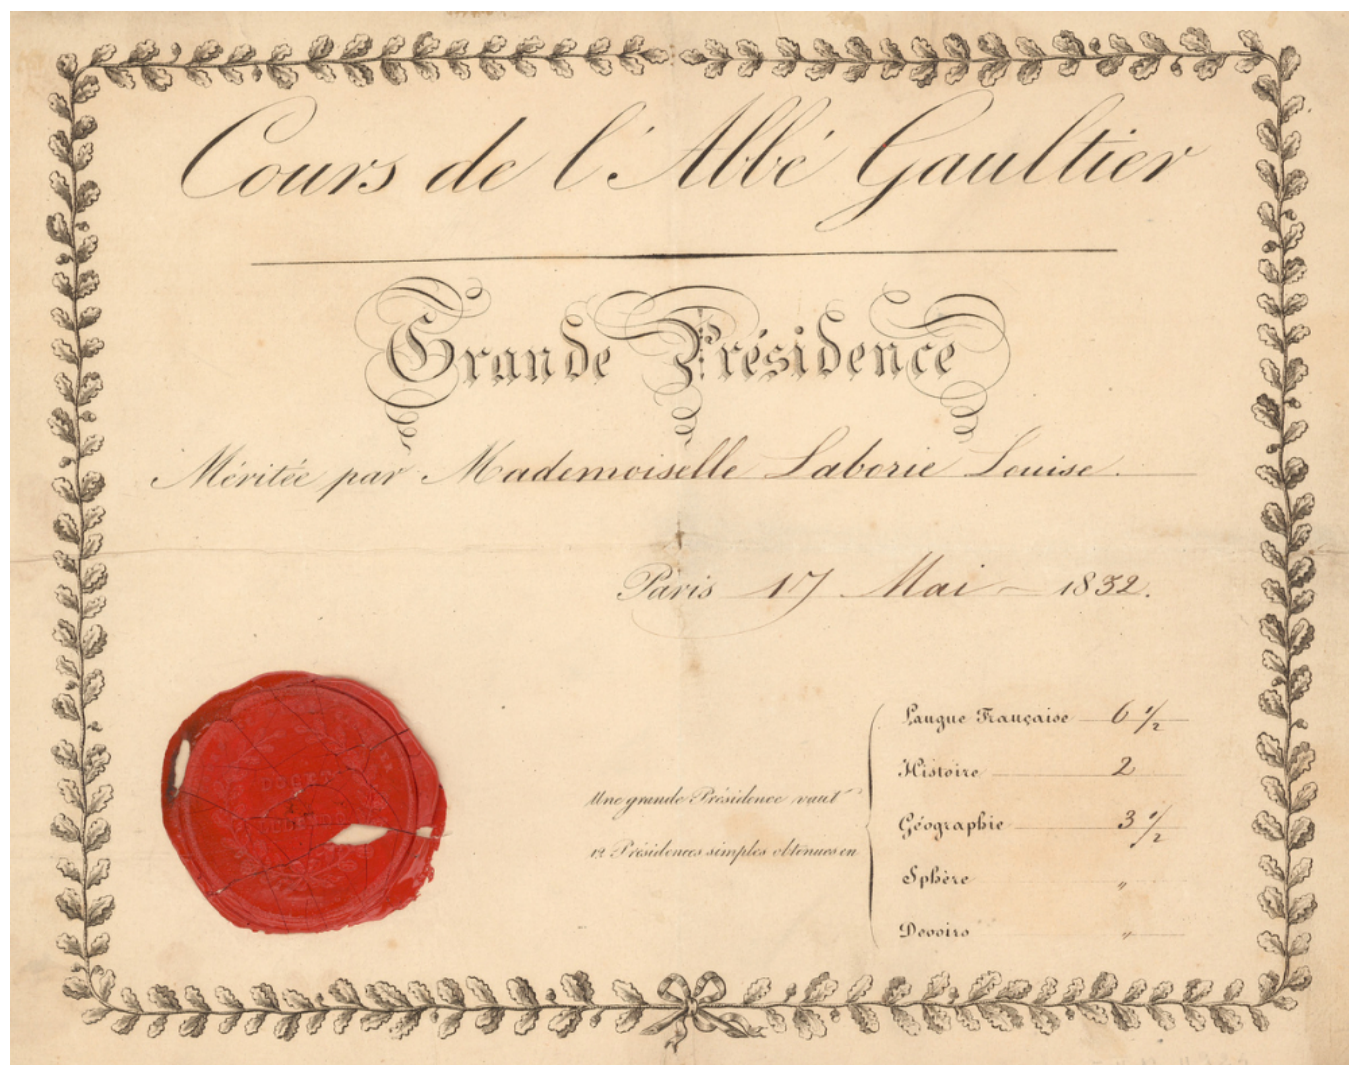 Cours de l'Abbé Gaultier
Grande Présidence
Méritée par Mademoiselle Laborie Louise.
Paris 17 Mai 1832.
Une grande Présidence vaut
12 Présidences simples obtenues en
Langue Française 6 1/2
Histoire 2
Géographie 3 1/2
Sphère "
Devoirs "
DOCET